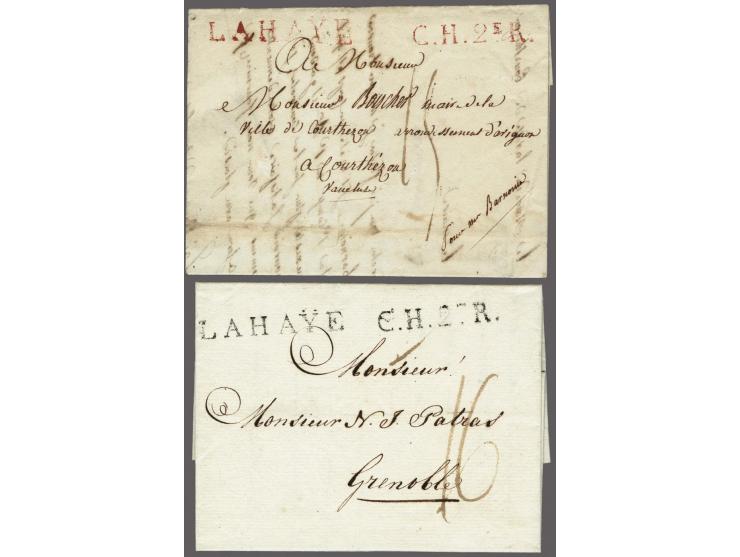 LAHAYE C.H.2E R.
A Monsieur
Monsieur Boycher maire de la
Ville de Courthezon arrondissement d'avignon
a Courthézon
Vaucluse
15
pour mr
LAHAYE C.H.2E R.
Monsieur
Monsieur N. J. Patras
16
Grenoble